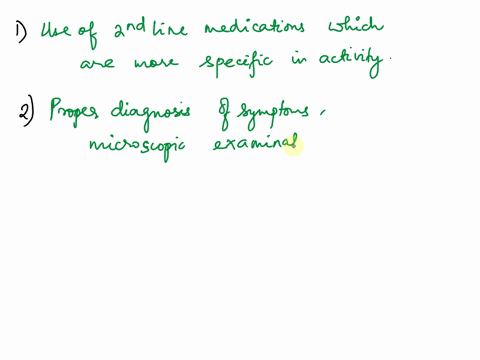 1) Use of 2nd line medications which
are more specific in activity.
2) Proper diagnosis of symptoms,
microscopic examinat